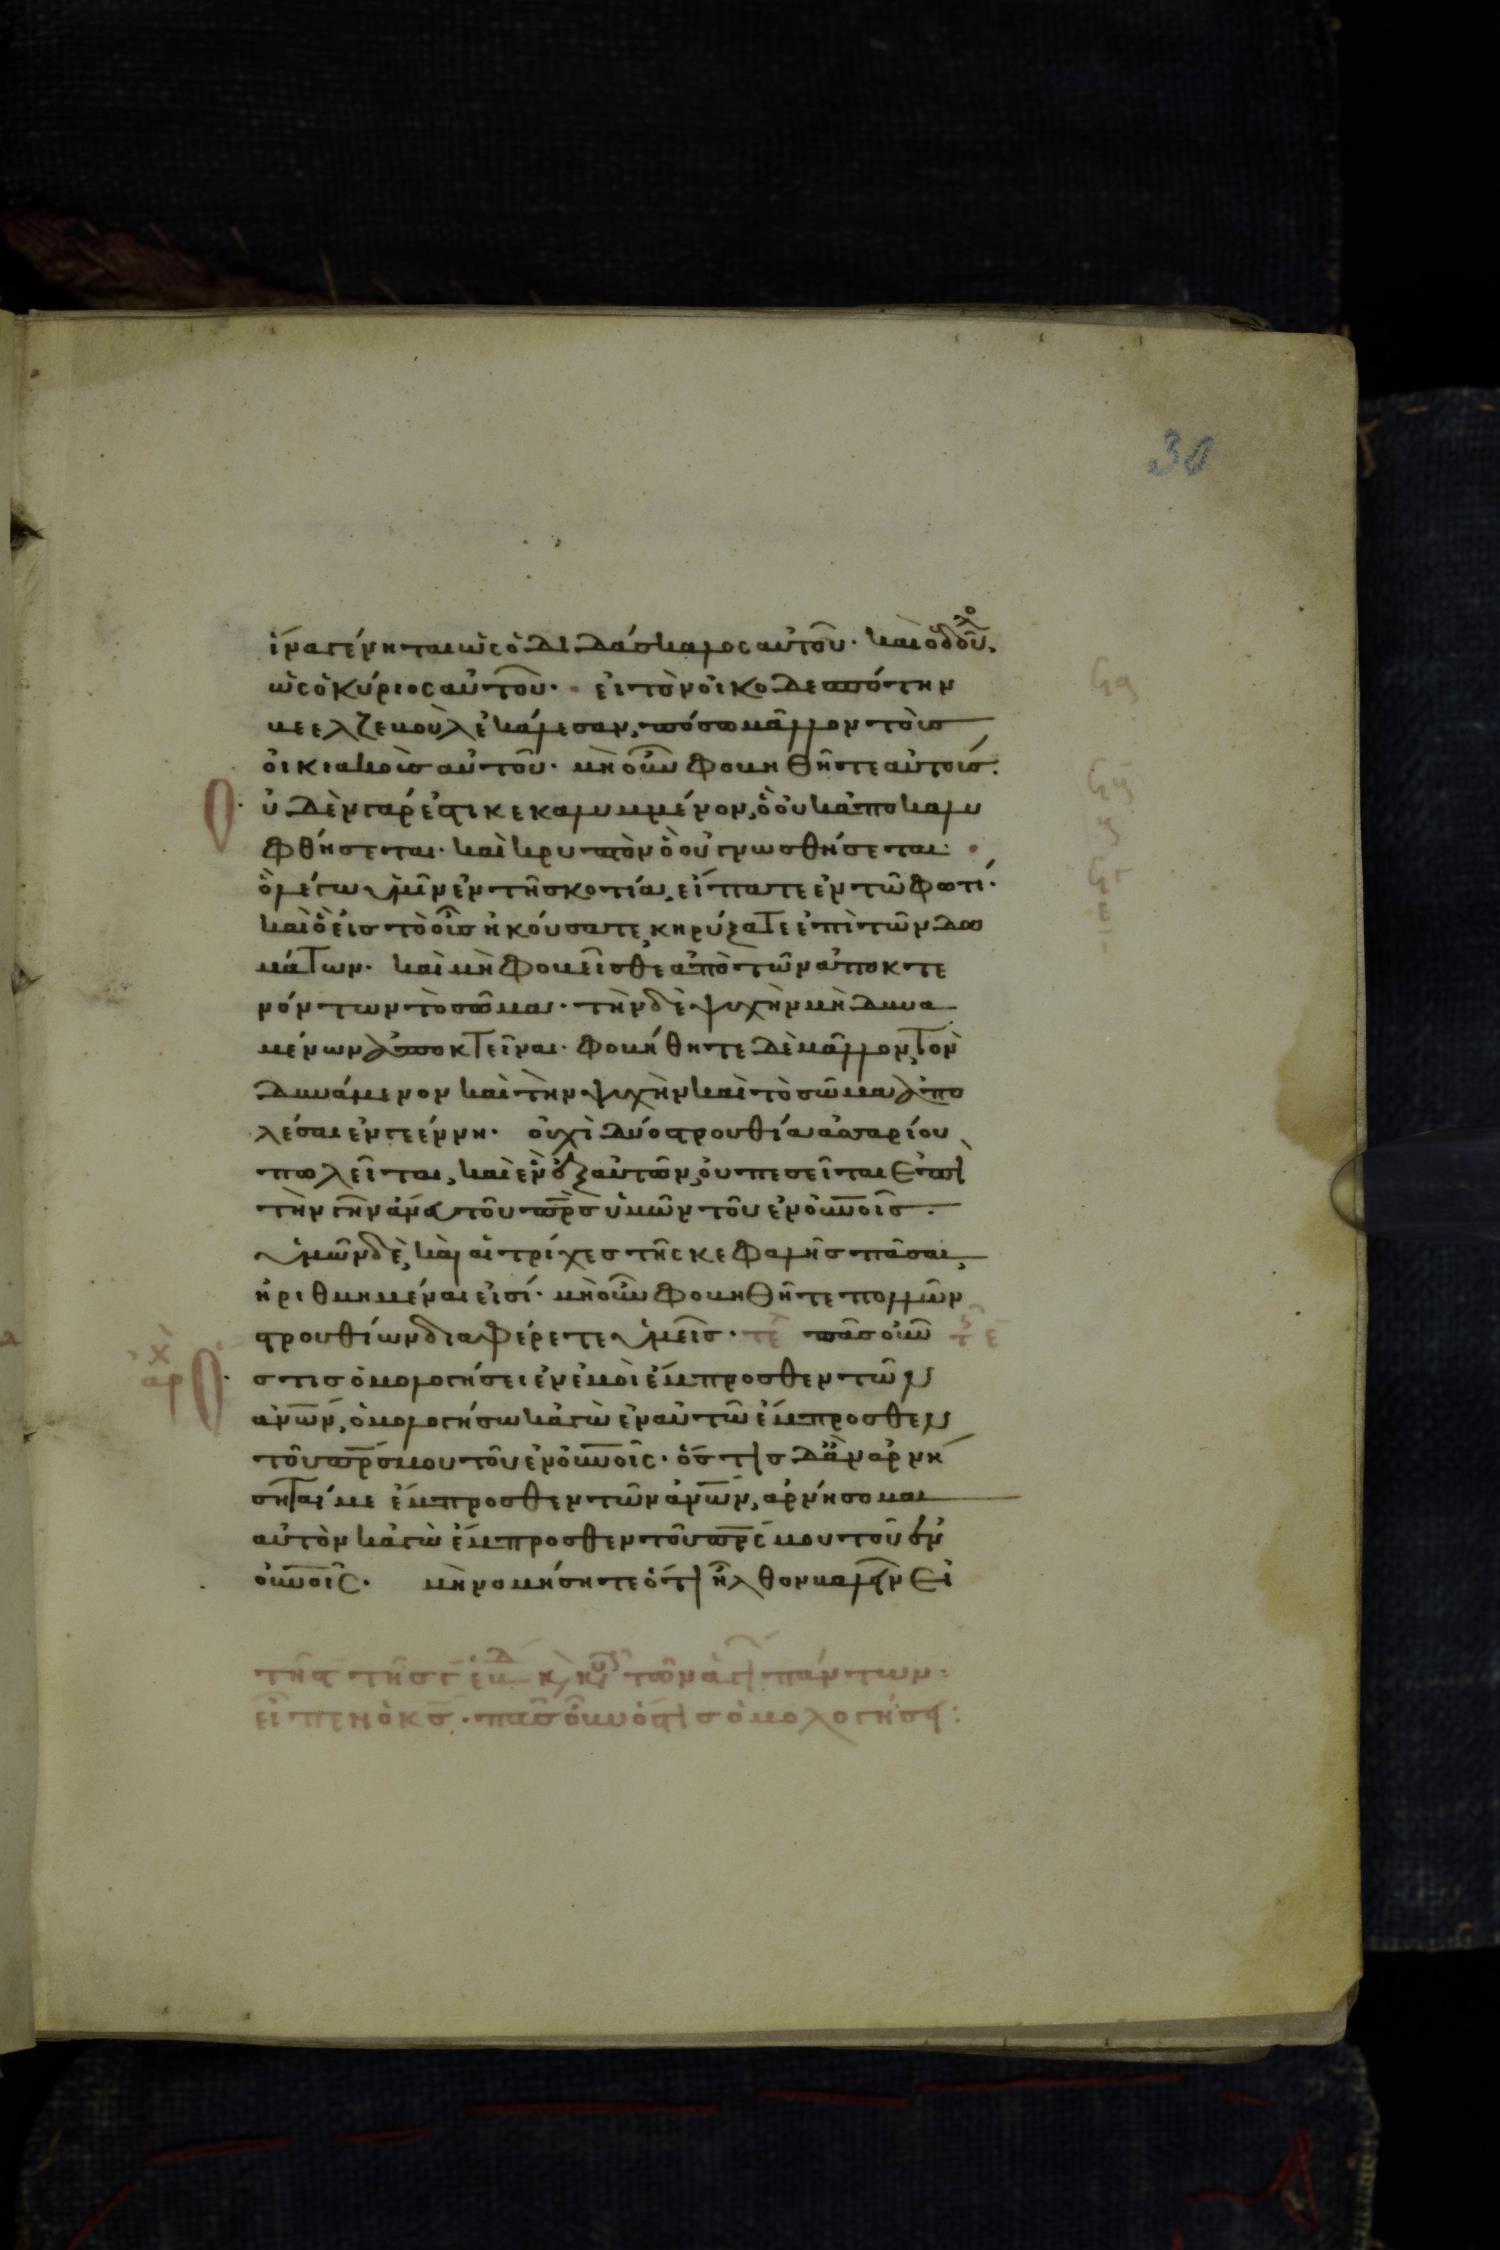 30
ἵνα γένηται ὡς ὁ διδάσκαλος αὐτοῦ· καὶ ὁ δοῦλο
ὡς ὁ κύριος αὐτοῦ· εἰ τὸν οἰκοδεσπότην
βεελζεβοὺλ ἐκάλεσαν, πόσω μᾶλλον τοὺς
οἰκιακοὺς αὐτοῦ· μὴ οὖν φοβηθῆτε αὐτούς·
ὐδὲν γάρ ἐστι κεκαλυμμένον, ὃ οὐκ ἀποκαλυ
φθήσεται· καὶ κρυπτὸν ὃ οὐ γνωσθήσεται·
ὃ λέγω ὑμῖν ἐν τῆ σκοτία, εἴπατε ἐν τῶ φωτί·
καὶ ὃ εἰς τὸ οὖς ἠκούσατε, κηρύξατε ἐπὶ τῶν δω
μάτων· καὶ μὴ φοβεῖσθε ἀπὸ τῶν ἀποκτε
νόντων τὸ σῶμα· τὴν δὲ ψυχὴν μὴ δυνα
μένων ἀποκτεῖναι· φοβήθητε δὲ μᾶλλον, τὸν
δυνάμενον καὶ τὴν ψυχὴν καὶ τὸ σῶμα ἀπο
λέσαι ἐν γεέννη· οὐχὶ δύο στρουθία ἀσσαρίου
πωλεῖται, καὶ ἓν ἐξ αὐτῶν, οὐ πεσεῖται ἐπὶ
τὴν γῆν ἄνευ τοῦ πρς ὑμῶν τοῦ ἐν οὐνοῖς·
ὑμῶν δὲ, καὶ αἱ τρίχες τῆς κεφαλῆς πᾶσαι,
ἠριθμημέναι εἰσί· μὴ οὖν φοβηθῆτε πολλῶν
στρουθίων διαφέρετε ὑμεῖς· τε πᾶς οὖν
χ
αρ
στις ὁμολογήσει ἐν ἐμοὶ ἔμπροσθεν τῶν
ἀνων, ὁμολογήσω κἀγὼ ἐν αὐτῶ ἔμπροσθεν
τοῦ πρς μου τοῦ ἐν οὐνοῖς· ὅστις δἂν ἀρνή
σηταί με ἔμπροσθεν τῶν ἀνων, ἀρνήσομαι
αὐτὸν κἀγὼ ἔμπροσθεν τοῦ πρς μου τοῦ ἐν
οὐνοῖς· μὴ νομήσητε ὅτι ἦλθον βαλεῖν εἰ
πάντων:
εἶπεν ὁ κς· πᾶς οὖν ὅστις ὁμολογήσει: